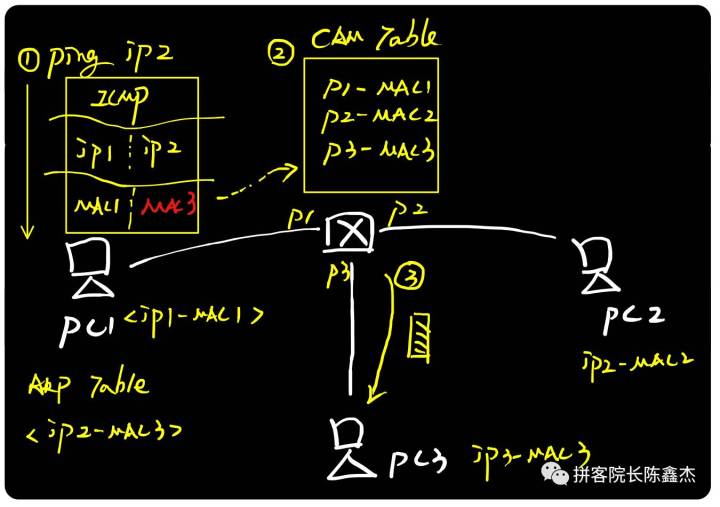 ① Ping ip2
ICMP
ip1 ip2
MAC1 MAC3
② CAM Table
p1-MAC1
p2-MAC2
p3-MAC3
p1
p2
p3
③
PC1 <ip1-MAC1>
ARP Table
<ip2-MAC3>
PC2
ip2-MAC2
PC3 ip3-MAC3
拼客院长陈鑫杰